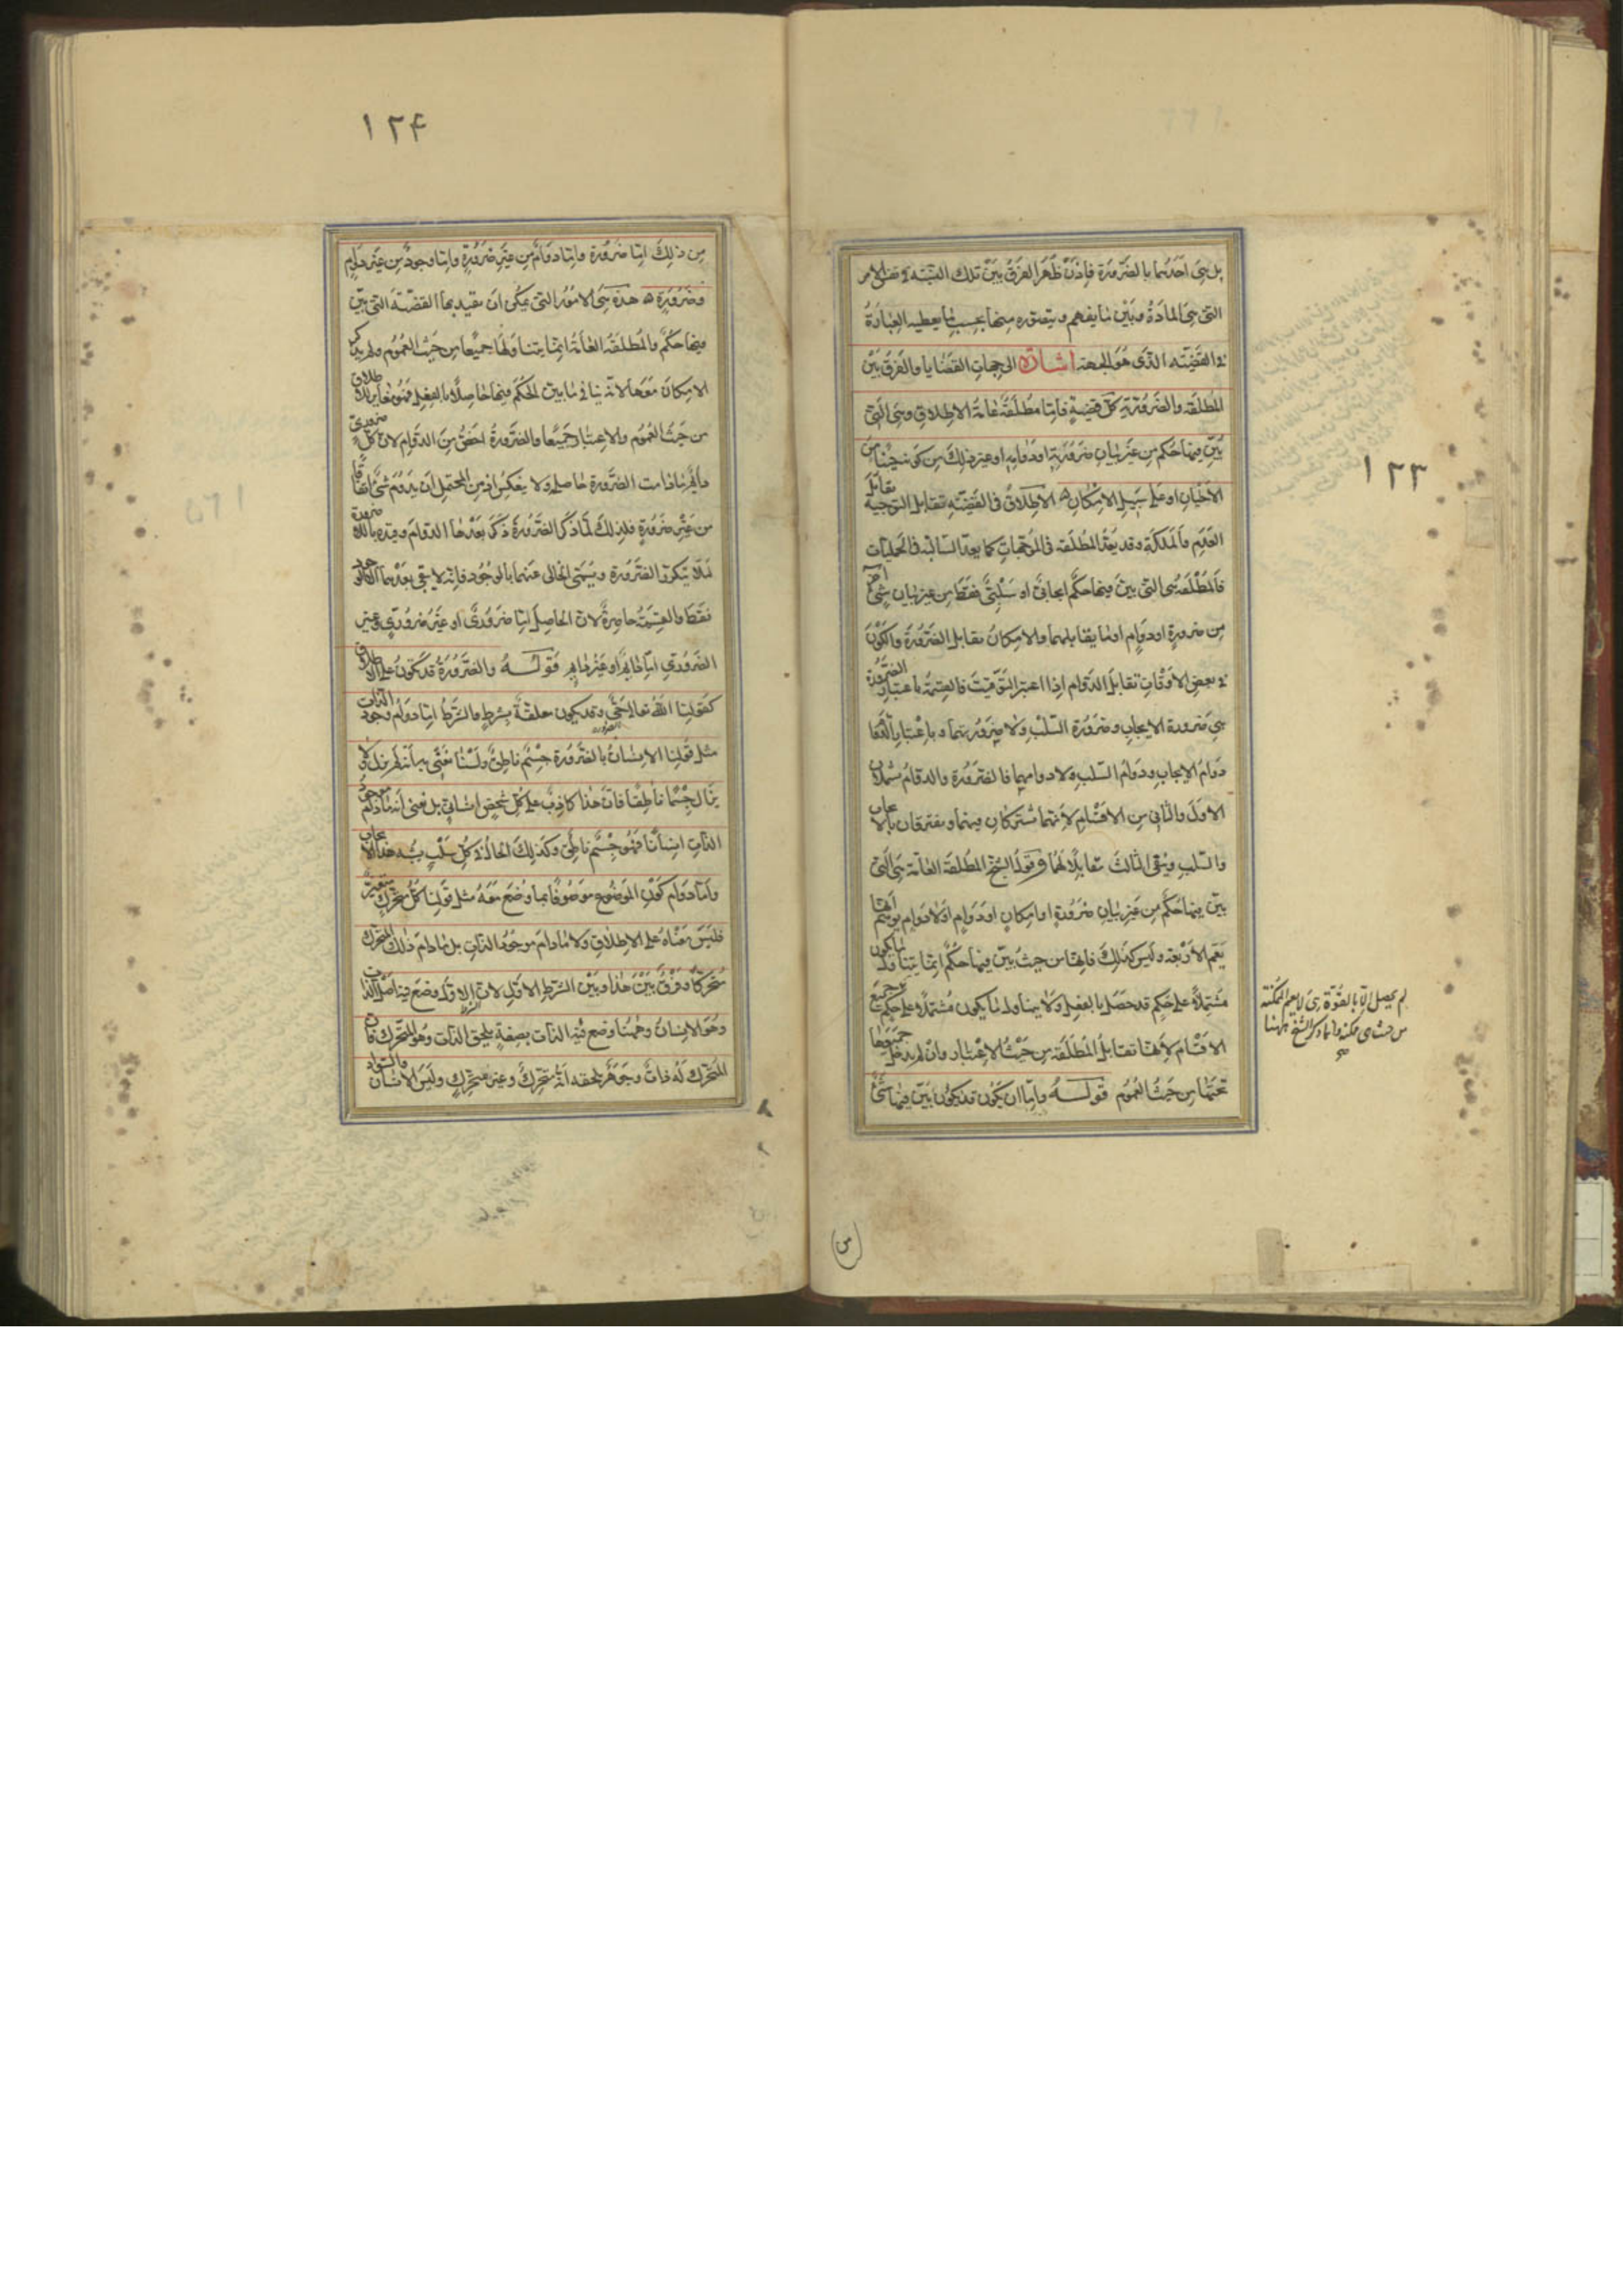 ١٢٣
بل هي احدهما بالضرورة فإذن ظهر الفرق بين تلك النسبة في نفس الامر
التي هي المادة وبين ما يفهم ويتصور منها بحسب ما يعطيه العبارة
في القضية الذي هو الجهة اشارة الى جهات القضايا والفرق بين
المطلقة والضرورية كل قضية فاما مطلقة عامة الاطلاق وهي التي
بين فيها حكم من غير بيان ضرورية او دوامه او غير ذلك من كونه حينا من
الاحيان او على سبيل الامكان الاطلاق في القضية تقابل التوجيه تقابل
العدم والملكة وقد يعد المطلقة في الموجهات كما يعد السالبة في الحمليات
فالمطلقة هي التي بين فيها حكم ايجابي او سلبي فقط من غير بيان شئ اخر
من ضرورة او دوام او ما يقابلهما والامكان تقابل الضرورة والكون
في بعض الاوقات تقابل الدوام اذا اعتبر التوقيت فالقسمة باعتبار الضرورة
هي ضرورة الايجاب وضرورة السلب ولا ضرورتهما وباعتبار الدوام
دوام الايجاب ودوام السلب ولا دوامهما فالضرورة والدوام يشملان
الاول والثاني من الاقسام لانهما تشتركان فيهما وتفترقان بالايجاب
والسلب ويبقى الثالث مقابلا لهما وقول الشيخ المطلقة العامة هي التي
بين فيها حكم من غير بيان ضرورة او امكان او دوام او لا دوام يوهم انها
يعم الاربعة وليس كذلك فانها من حيث بين فيها حكم انما يتناول ما يكون
مشتملا على حكم قد حصل بالفعل ولا يتناول ما يكون مشتملا على حكم
الاقسام لانها تقابل المطلقة من حيث الاعتبار وان لم يدخل جميعها
تحتها من حيث العموم قوله واما ان يكون قد يكون بين فيها شئ
لم يحصل الا بالقوة
من حيث هي ممكنة وانما ذكر الشيخ ههنا
١٢۴
من ذلك اما ضرورة واما دوام من غير ضرورة واما وجود من غير دوام
وضرورة هذه هي الامور التي يمكن ان تقيد بها القضية التي بين
فيها حكم والمطلقة العامة انما يتناولها جميعا من حيث العموم ولم يذكر
الامكان معها لانه ينافي ما بين الحكم فيها حاصلا بالفعل فهو مغاير للاطلاق
من حيث العموم والاعتبار جميعا والضرورة اخص من الدوام لان كل ضروري
دائم ما دامت الضرورة حاصلة ولا ينعكس اذ من المحتمل ان يدوم شئ اتفاقا
من غير ضرورة فلذلك لما ذكر الضرورة ذكر بعدها الدوام وقيده باللاضرورة
لئلا يتكرر الضرورة ويسمى الخالي عنهما بالوجود فانه لا يبقى بعدهما الا الوجود
فقط والقسمة حاصرة لان الحاصل اما ضروري او غير ضروري وغير
الضروري اما دائم او غير دائم قوله والضرورة قد تكون على الاطلاق
كقولنا الله تعالى حي وقد يكون معلقة بشرط والشرط اما دوام وجود الذات
مثل قولنا الانسان بالضرورة جسم ناطق ولسنا نعني به انه لم يزل ولا
يزال جسما ناطقا فان هذا كاذب على كل شخص انساني بل نعني انه ما دام موجود
الذات انسانا فهو جسم ناطق وكذلك الحال في كل سلب يشبه هذا الايجاب
واما دوام كون الموضوع موصوفا بما وضع معه مثل قولنا كل متحرك متغير
فليس معناه على الاطلاق ولا ما دام موجود الذات بل ما دام ذات المتحرك
متحركا وفرق بين هذا وبين الشرط الاول لان الشرط الاول وضع فيه اصل الذات
وهو الانسان وههنا وضع فيه الذات بصفة يلحق الذات وهو المتحرك فان
المتحرك له ذات وجوهر يلحقه انه متحرك وغير متحرك وليس الانسان والسواد